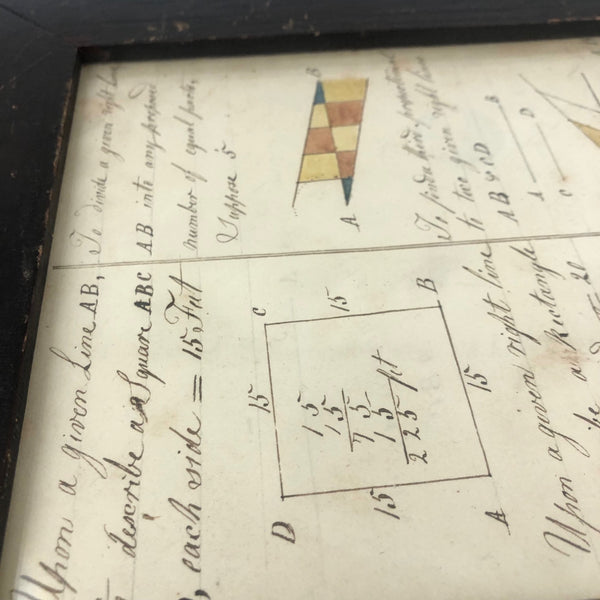 Upon a given Line AB,
describe a Square ABC
D, each side = 15 Feet
D
C
15
15
15
15
15
75
15
225 fet
15
B
A
Upon a given right line
be a Rectangle
= 20
To divide a given right line
AB into any proposed
number of equal parts,
Suppose 5
A
B
To find a
proportional
to two given right lines
AB & CD
A
B
C
D